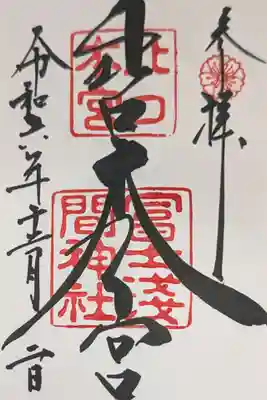 参拝
北口本宮
北口
本宮
冨士淺
間神社
令和六年十二月